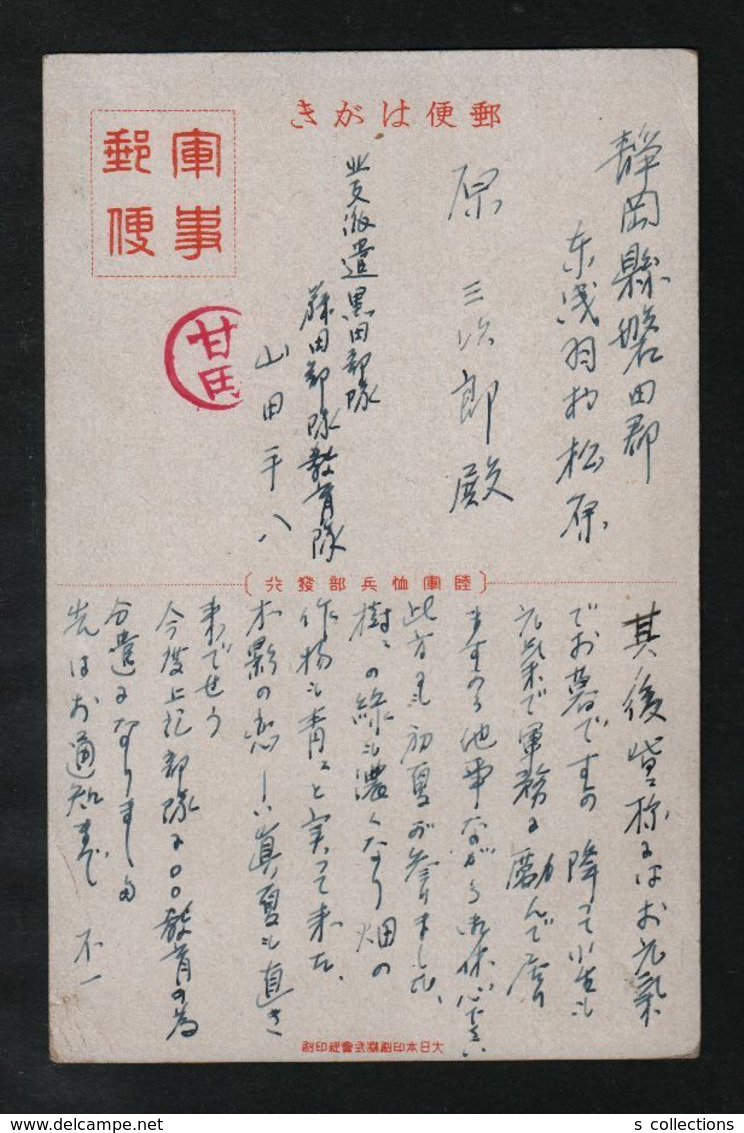 郵便はがき
軍事
郵便
靜岡縣磐田郡
東浅羽村松原
原三次郎殿
北支派遣黒田部隊
藤田部隊教育隊
山田平八
甘日
陸軍恤兵部發行
其後皆様にはお元氣
でお暮ですか 降って小生も
元気で軍務に勵んで居り
ますから他事ながら御休心下さい
此方にも初夏が参りました、
樹々の緑も濃くなり畑の
作物も青々と実って来た、
木影の恋しい眞夏も直き
来でせう
今度上記部隊に〇〇教育の為
分遣になりました
先はお通知まで 不一
大日本印刷株式會社印刷
s collections